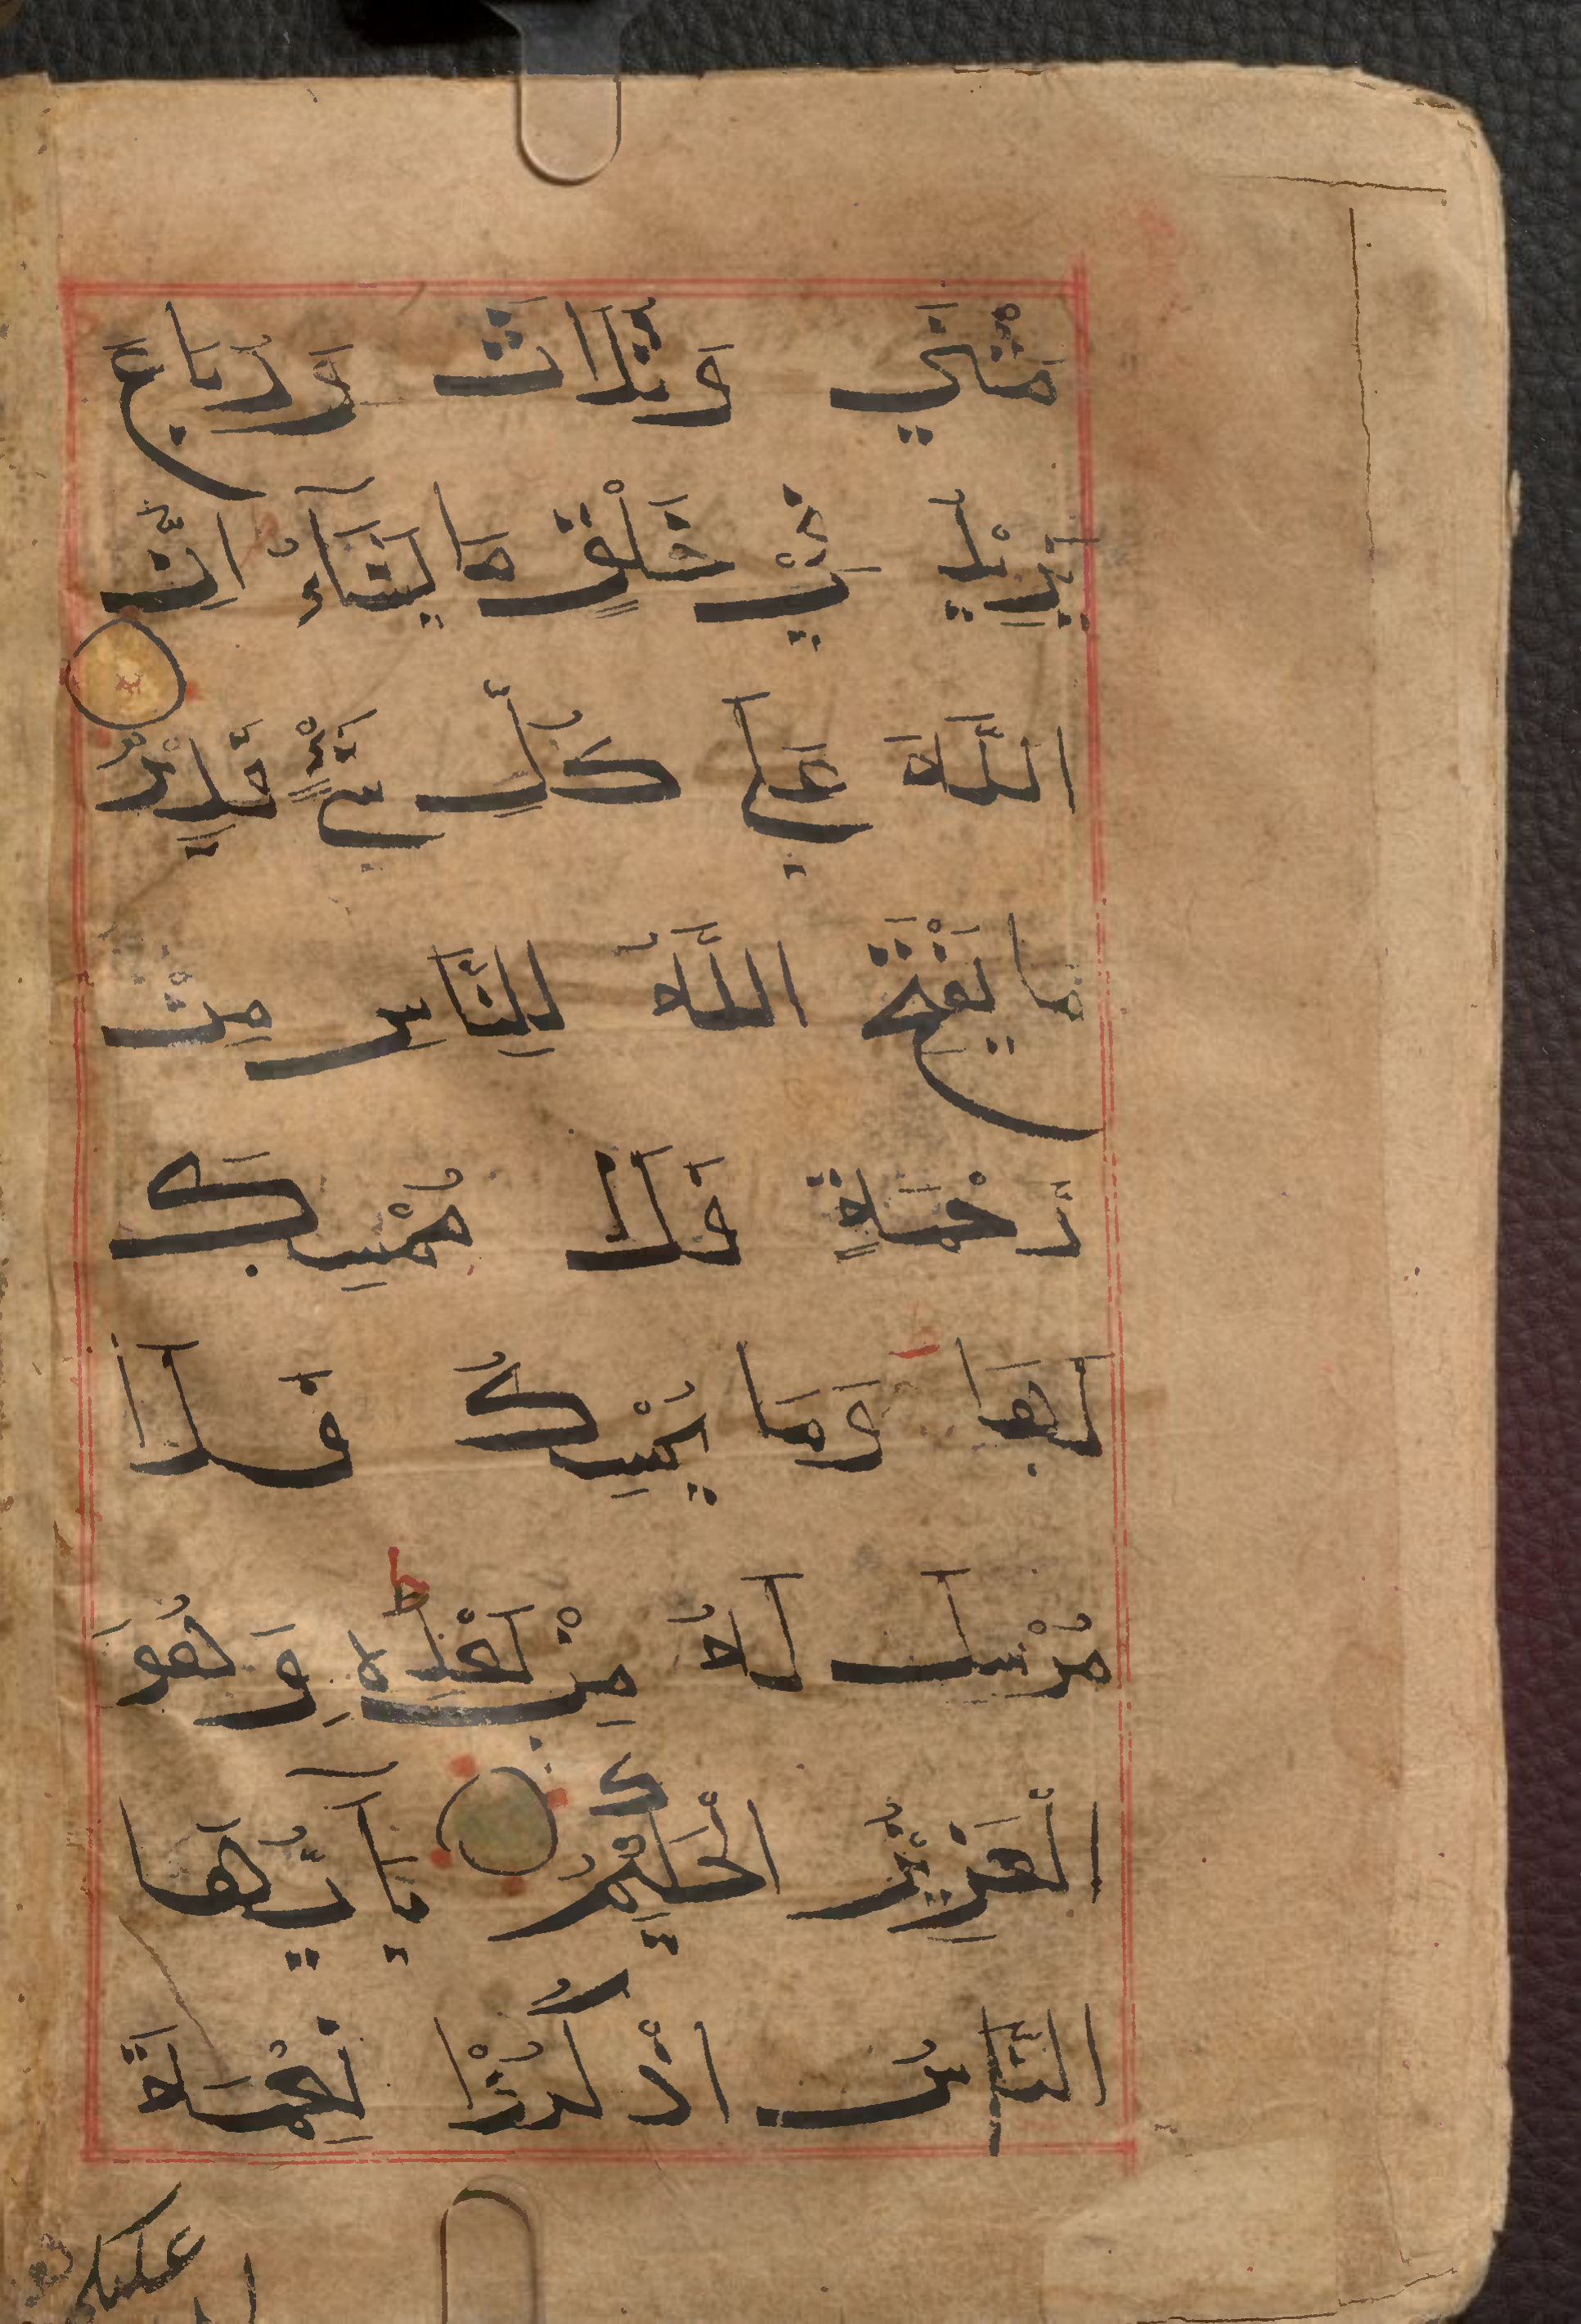 مَثْنَي وَثُلَاثَ وَرُبَاعَ
يَزِيْدُ فِي الْخَلْقِ مَا يَشَآءُ اِنَّ
اللَّهَ عَلَي كُلِّ شَيْءٍ قَدِيْرٌ
مَا يَفْتَحِ اللَّهُ لِلنَّاسِ مِنْ
رَحْمَةٍ فَلَا مُمْسِكَ
لَهَا وَمَا يُمْسِكُ فَلَا
مُرْسِلَ لَهُ مِنْ بَعْدِهِ ط وَهُوَ
الْعَزِيْزُ الْحَكِيْمُ يَآ اَيُّهَا
النَّاسُ اذْكُرُوْا نِعْمَةَ
عليكم